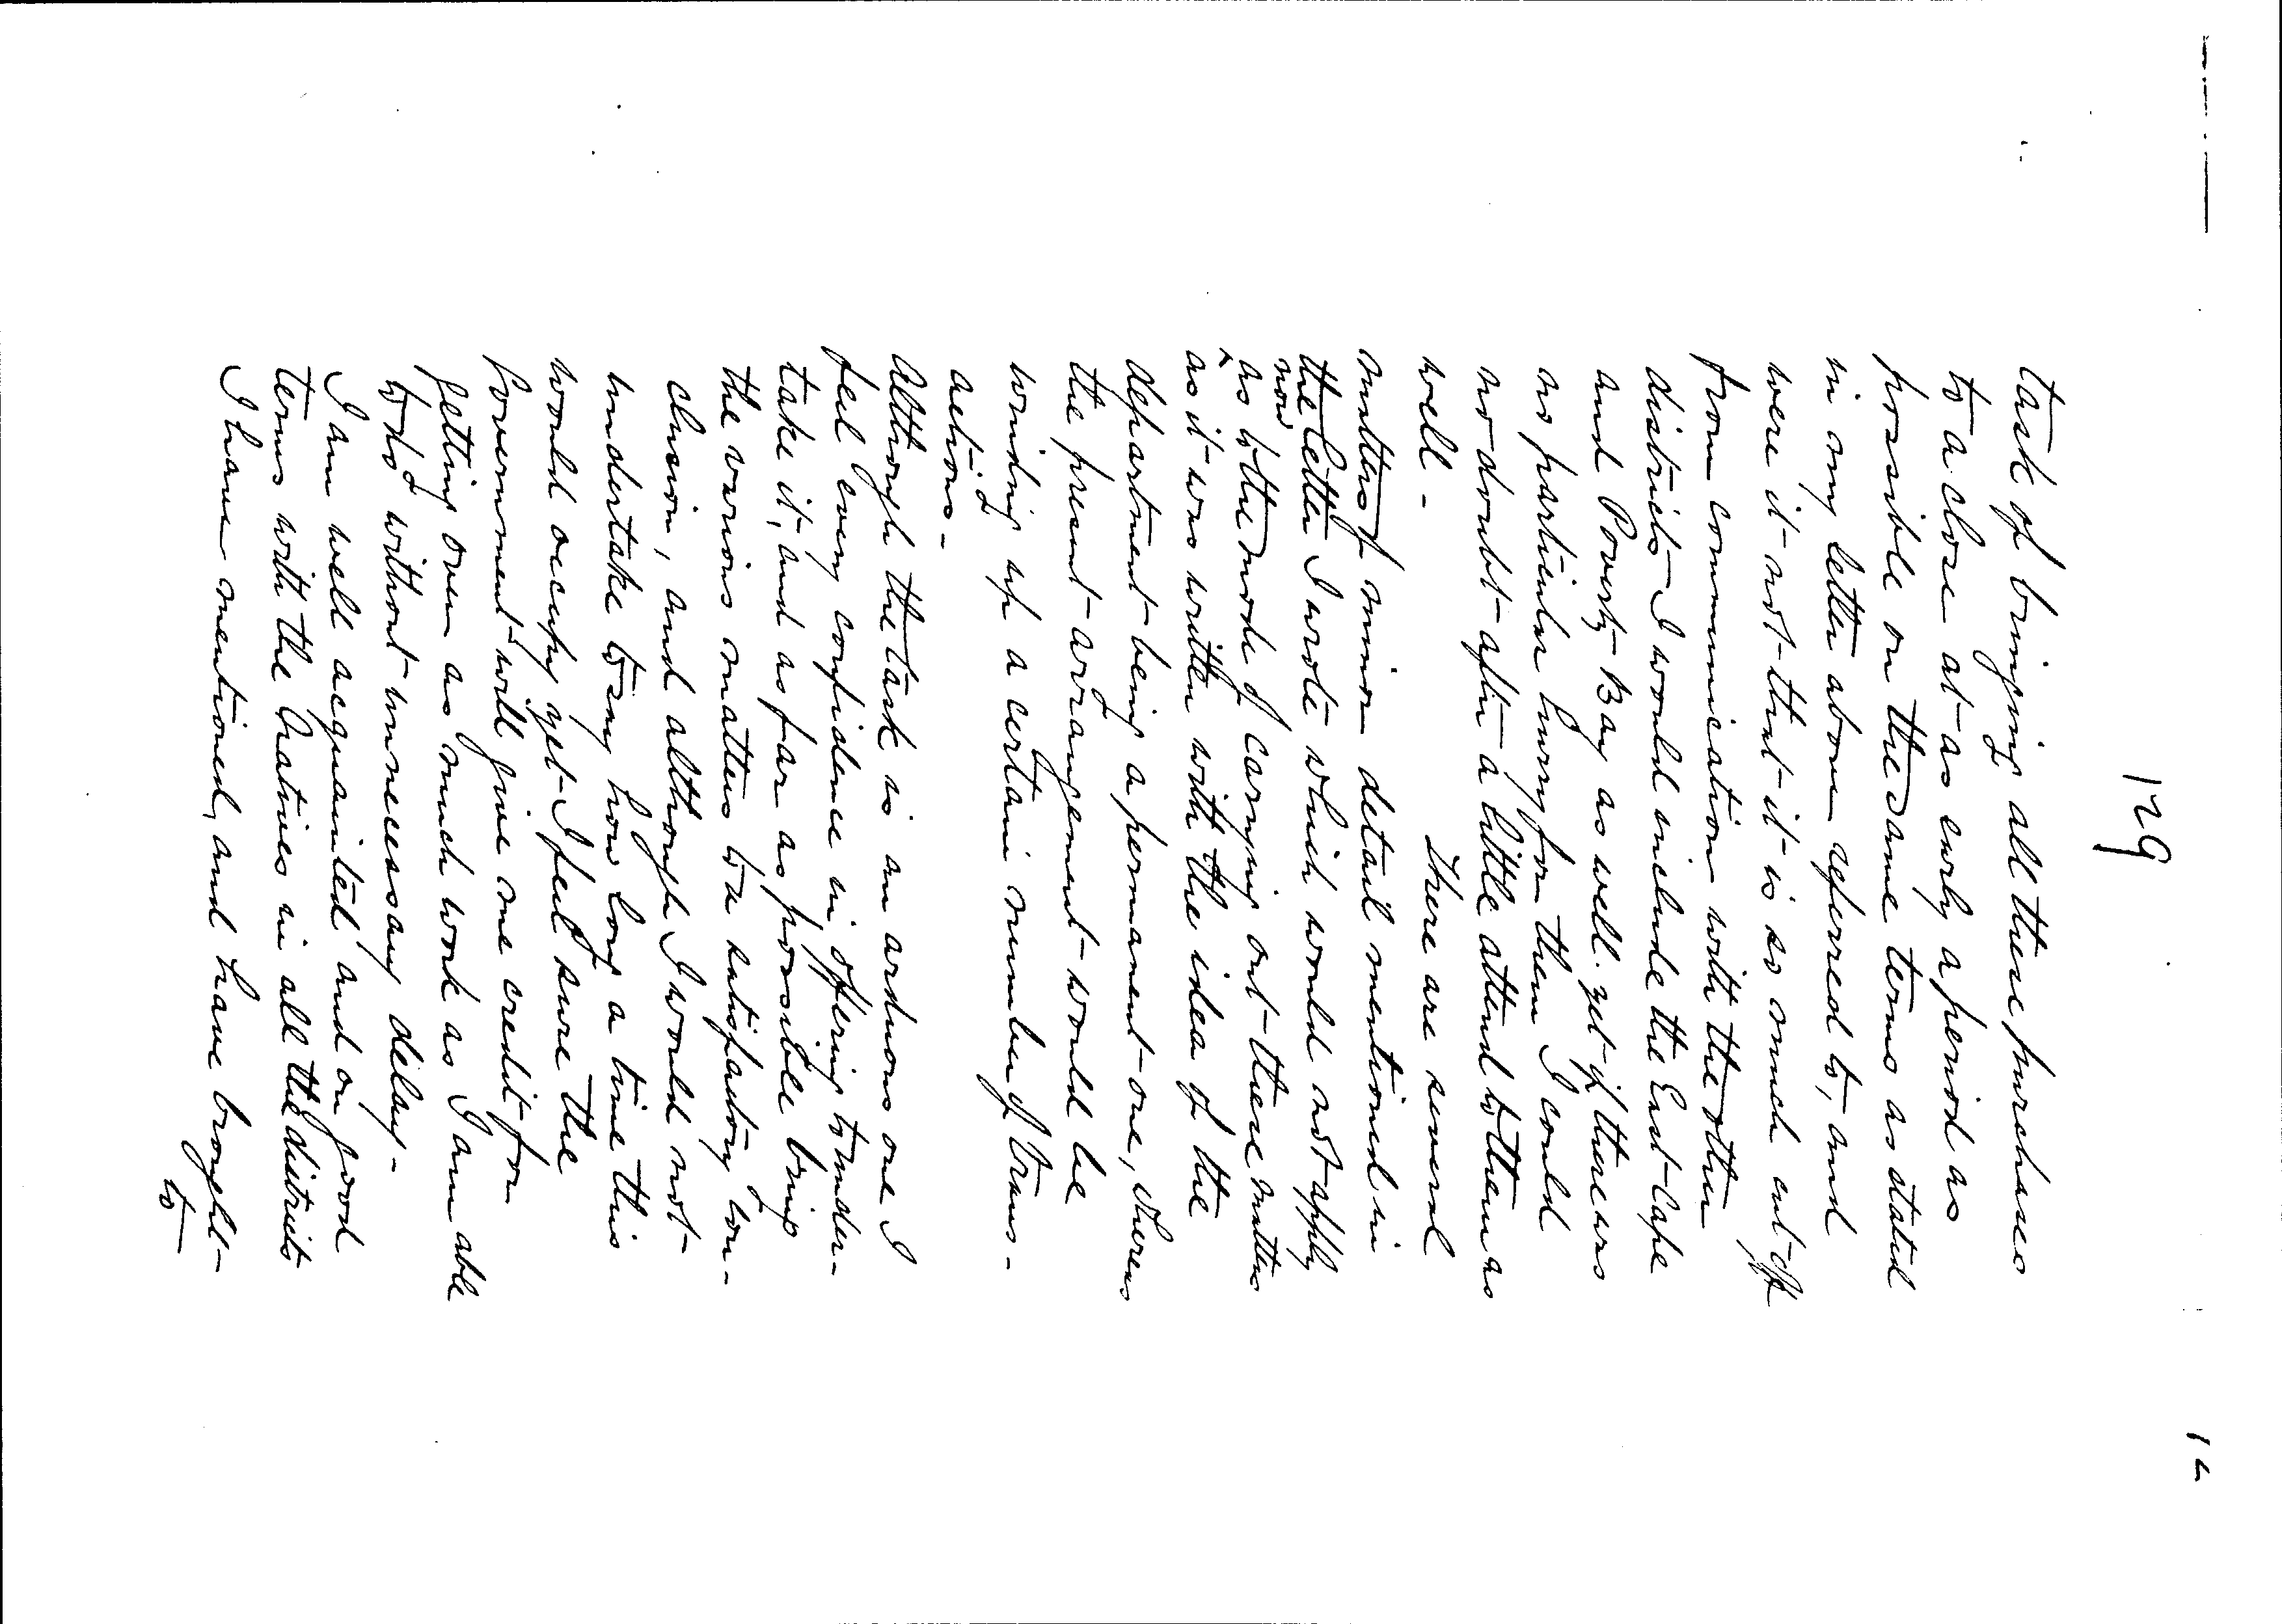 129
12
task of bringing all these purchases
to a close at as early a period as
possible on the same terms as stated
in my letter above referred to, and
were it not that it is so much cut off
from communication with the other
districts I would include the East Cape
and Poverty Bay as well. yet if there was
no particular hurry for them I could
no doubt after a little attend to them as
well -
There are several
matters of minor detail mentioned in
the letter I wrote which would not apply
now
as to the mode of carrying out these matters
as it was written with the idea of the
department being a permanent one, whereas
the present arrangement would be
winding up a certain number of trans-
actions -
Although the task is an arduous one I
feel every confidence in offering to under-
take it, and as far as possible bring
the various matters to a satisfactory con-
clusion, and although I would not
undertake to say how long a time this
would occupy yet I feel sure the
Government will give me credit for
getting over as much work as I am able
to do without unnecessary delay -
I am well acquainted and on good
terms with the Natives in all the districts
I have mentioned, and have brought
to